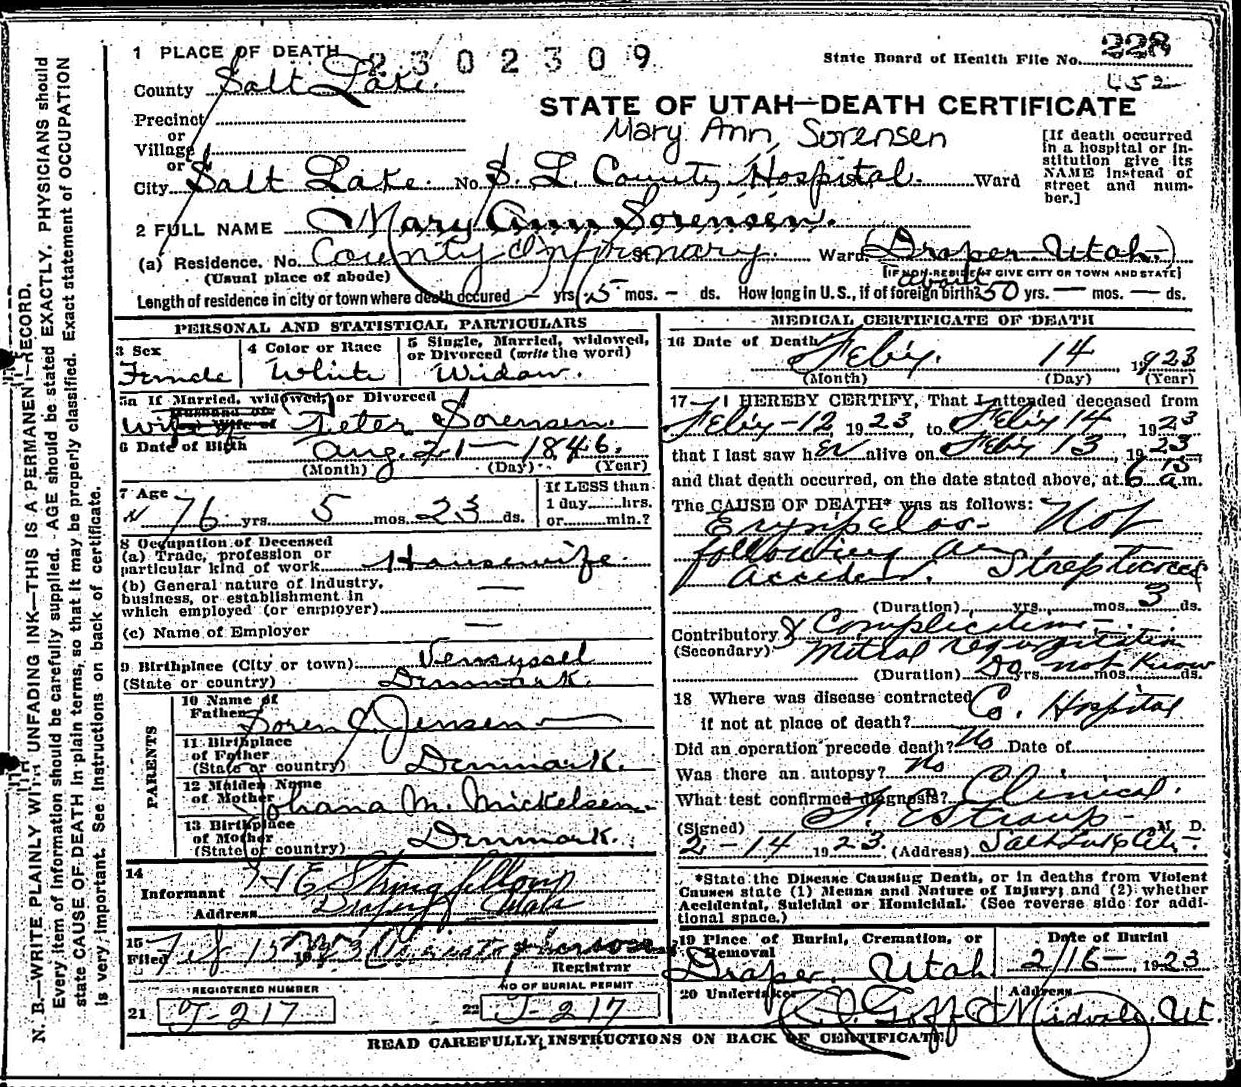 1 PLACE OF DEATH 2302309
State Board of Health File No. 228
452
County Salt Lake.
STATE OF UTAH—DEATH CERTIFICATE
Precinct
or
Village
or
Mary Ann Sorensen
[If death occurred
in a hospital or in-
stitution give its
NAME instead of
street and num-
ber.]
City Salt Lake. No. S. L. County Hospital. Ward
2 FULL NAME Mary Ann Sorensen.
(a) Residence. No. County Infirmary. Ward (Draper Utah.)
(Usual place of abode) [IF NON-RESIDENT GIVE CITY OR TOWN AND STATE]
about
Length of residence in city or town where death occured — yrs. 5 mos. - ds. How long in U.S., if of foreign birth? 50 yrs. — mos. — ds.
PERSONAL AND STATISTICAL PARTICULARS
3 Sex
Female
4 Color or Race
White
5 Single, Married, widowed,
or Divorced (write the word)
Widow.
5a If Married, widowed, or Divorced
Husband of
Wife of Peter Sorensen.
6 Date of Birth Aug. 21 — 1846.
(Month) (Day) (Year)
7 Age
76 yrs. 5 mos. 23 ds.
If LESS than
1 day......hrs.
or......min.?
8 Occupation of Deceased
(a) Trade, profession or
particular kind of work Housewife.
(b) General nature of Industry,
business, or establishment in
which employed (or employer) —
(c) Name of Employer —
9 Birthplace (City or town) Vensyssel
(State or country) Denmark.
PARENTS
10 Name of
Father Soren J. Jensen
11 Birthplace
of Father
(State or country) Denmark.
12 Maiden Name
of Mother Johana M. Mickelsen
13 Birthplace
of Mother
(State or country) Denmark.
14
Informant H E Stringfellow
Address Draper Utah
15
Filed Feb 15 1923
Registrar
REGISTERED NUMBER
21 J-217
NO OF BURIAL PERMIT
22 J-217
MEDICAL CERTIFICATE OF DEATH
16 Date of Death Feby. 14 1923
(Month) (Day) (Year)
17 I HEREBY CERTIFY, That I attended deceased from
Feby-12 1923, to Feby 14, 1923
that I last saw her alive on Feby 13, 1923
and that death occurred, on the date stated above, at 6 15 a.m.
The CAUSE OF DEATH* was as follows:
Erysipelas- Not
following an
accident. Streptococci
(Duration) yrs. mos. 3 ds.
Contributory Complication-
(Secondary) Mitral regurgitation
(Duration) Do not know yrs. mos. ds.
18 Where was disease contracted
if not at place of death? Co. Hospital
Did an operation precede death? No Date of
Was there an autopsy? No
What test confirmed diagnosis? Clinical.
(Signed) M. D.
2-14 1923. (Address) Salt Lake City.
*State the Disease Causing Death, or in deaths from Violent
Causes state (1) Means and Nature of Injury; and (2) whether
Accidental, Suicidal or Homicidal. (See reverse side for addi-
tional space.)
19 Place of Burial, Cremation, or
Removal
Draper Utah
Date of Burial
2/16-, 1923
20 Undertaker Goff
Address
Midvale, Ut.
READ CAREFULLY INSTRUCTIONS ON BACK OF CERTIFICATE
N. B.—WRITE PLAINLY WITH UNFADING INK—THIS IS A PERMANENT RECORD.
Every item of information should be carefully supplied. AGE should be stated EXACTLY. PHYSICIANS should
state CAUSE OF DEATH in plain terms, so that it may be properly classified. Exact statement of OCCUPATION
is very important. See instructions on back of certificate.